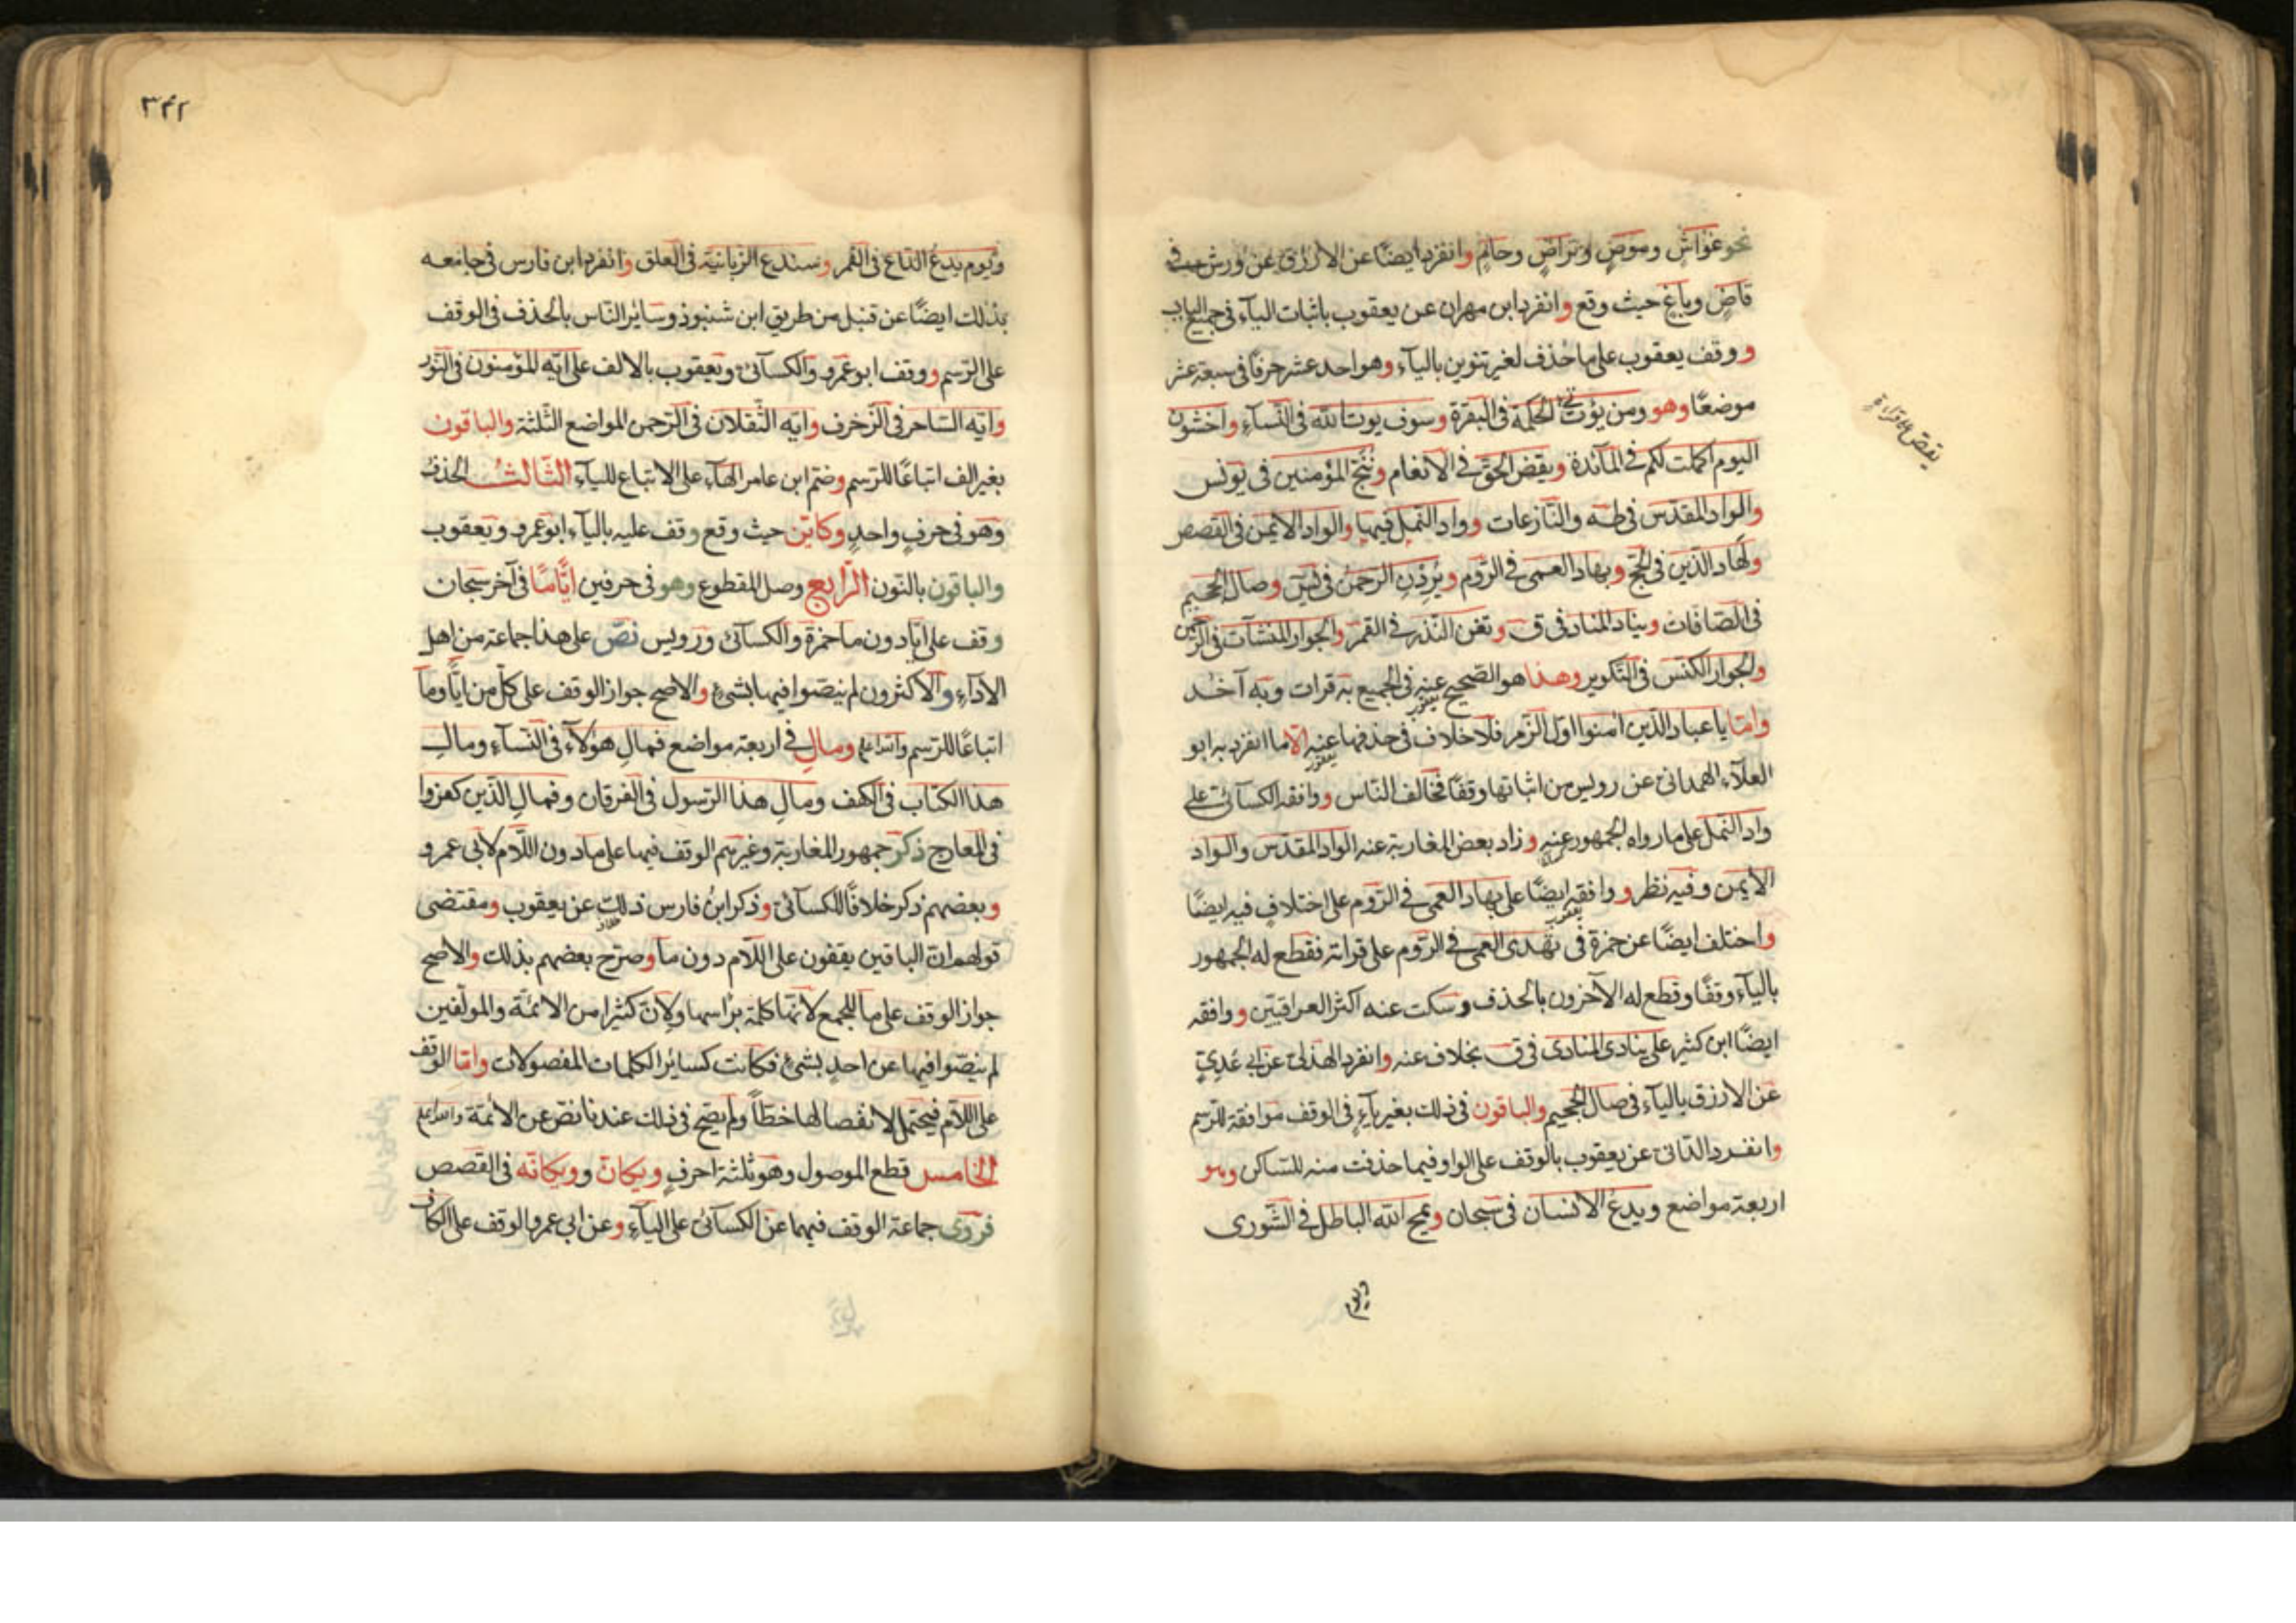 نحو غواشٍ وموصٍ وتراضٍ وحامٍ وانفرد ايضًا عن الازرق عن ورش في
قاضٍ وباغٍ حيث وقع وانفرد ابن مهران عن يعقوب باثبات الياء في جميع الباب
ووقف يعقوب على ما حذف لغير تنوين بالياء وهو احد عشر حرفًا في سبعة عشر
موضعًا وهو ومن يؤت الحكمة في البقرة وسوف يوت الله في النساء واخشون
اليوم اكملت لكم في المائدة ويقض الحق في الانعام وننج المؤمنين في يونس
والواد المقدس في طه والنازعات وواد النمل فيها والواد الايمن في القصص
ولهاد الذين في الحج وبهاد العمى في الروم ويردن الرحمن في يس وصال الجحيم
في الصافات ويناد المناد في ق وتغن النذر في القمر والجوار المنشآت في الرحمن
والجوار الكنس في التكوير وهذا هو الصحيح عنه في الجميع به قرات وبه آخذ
يعقوب
واما يا عباد الذين امنوا اول الزمر فلا خلاف في حذفها عنه الا ما انفرد به ابو
يعقوب
العلاء الهمداني عن رويس من اثباتها وقفًا فخالف الناس ووافقه الكسائي على
واد النمل على ما رواه الجمهور عنه وزاد بعض المغاربة عنه الواد المقدس والواد
الايمن وفيه نظر ووافقه ايضًا على بهاد العمى في الروم على اختلافٍ فيه ايضًا
يعقوب
واختلف ايضًا عن حمزة في تهدى العمى في الروم على قراته فقطع له الجمهور
بالياء وقفًا وقطع له الآخرون بالحذف وسكت عنه اكثر العراقيين ووافقه
ايضًا ابن كثير على ينادى المنادى في ق بخلاف عنه وانفرد الهذلي عن ابي عدي
عن الازرق بالياء في صال الجحيم والباقون في ذلك بغير ياءٍ في الوقف موافقة للرسم
وانفرد الداني عن يعقوب بالوقف على الواو فيما حذفت منه للساكن وهو
اربعة مواضع ويدع الانسان في سبحان ويمح الله الباطل في الشورى
ويوم
يقص
٣٤٢
ويوم يدع الداع في القمر وسندع الزبانية في العلق وانفرد ابن فارس في جامعه
بذلك ايضًا عن قنبل من طريق ابن شنبوذ وسائر الناس بالحذف في الوقف
على الرسم ووقف ابو عمرو والكسائي ويعقوب بالالف على ايه المؤمنون في النور
وايه الساحر في الزخرف وايه الثقلان في الرحمن المواضع الثلثة والباقون
بغير الف اتباعًا للرسم وضم ابن عامر الهاء على الاتباع للياء الثالث الحذف
وهو في حرفٍ واحدٍ وكاين حيث وقع وقف عليه بالياء ابو عمرو ويعقوب
والباقون بالنون الرابع وصل المقطوع وهو في حرفين ايًّا مّا في آخر سبحان
وقف على ايا دون ما حمزة والكسائي ورويس نص على هذا جماعة من اهل
الاداء والاكثرون لم ينصوا فيها بشئ والاصح جواز الوقف على كل من ايًّا وما
اتباعًا للرسم والله اعلم ومال في اربعة مواضع فمال هؤلاء في النساء ومال
هذا الكتاب في الكهف ومال هذا الرسول في الفرقان وفمال الذين كفروا
في المعارج ذكر جمهور المغاربة وغيرهم الوقف فيها على ما دون اللام لابي عمرو
وبعضهم ذكر خلافًا للكسائي وذكر ابن فارس ذلك عن يعقوب ومقتضى
قولهم ان الباقين يقفون على اللام دون ما وصرح بعضهم بذلك والاصح
جواز الوقف على ما للجمع لانها كلمة براسها ولان كثيرا من الائمة والمولفين
لم ينصوا فيها عن احدٍ بشئ فكانت كسائر الكلمات المفصولات واما الوقف
على اللام فيحتمل لانفصالها خطًّا ولم يصح في ذلك عندنا نص عن الائمة والله اعلم
الخامس قطع الموصول وهو ثلثة احرفٍ ويكان وويكانه في القصص
فروى جماعة الوقف فيهما عن الكسائي على الياء وعن ابي عمرو الوقف على الكاف